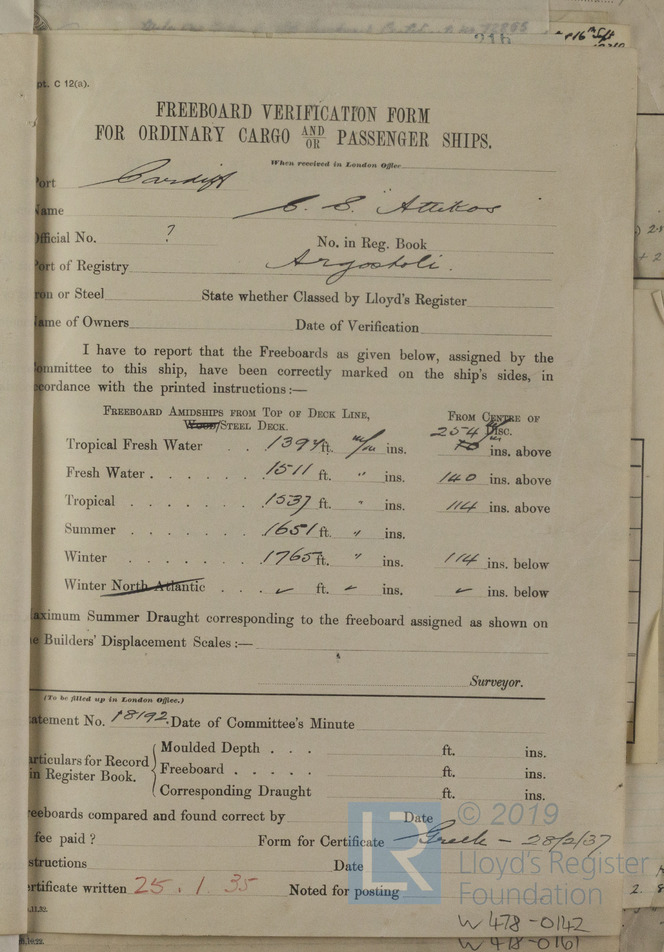 pt. C 12(a).
FREEBOARD VERIFICATION FORM
FOR ORDINARY CARGO AND/OR PASSENGER SHIPS.
When received in London Office
ort Cardiff
Name S. S. "Attikos
fficial No. ? No. in Reg. Book
ort of Registry Argostoli.
ron or Steel State whether Classed by Lloyd's Register
ame of Owners Date of Verification
I have to report that the Freeboards as given below, assigned by the
ommittee to this ship, have been correctly marked on the ship's sides, in
ccordance with the printed instructions:—
FREEBOARD AMIDSHIPS FROM TOP OF DECK LINE, FROM CENTRE OF
Wood/STEEL DECK. Disc.
254 m/m
Tropical Fresh Water . . 1397 ft. m/m ins. ins. above
Fresh Water . . . . . . . 1511 ft. " ins. 140 ins. above
Tropical . . . . . . . 1537 ft. " ins. 114 ins. above
Summer . . . . . . . 1651 ft. " ins.
Winter . . . . . . . 1765 ft. " ins. 114 ins. below
Winter North Atlantic . . . ft. ins. ins. below
aximum Summer Draught corresponding to the freeboard assigned as shown on
e Builders' Displacement Scales :—
Surveyor.
(To be filled up in London Office.)
atement No. 18192. Date of Committee's Minute
articulars for Record in Register Book. Moulded Depth . . . ft. ins.
Freeboard . . . . . ft. ins.
Corresponding Draught ft. ins.
reeboards compared and found correct by Date
fee paid ? Form for Certificate Greek – 28/2/37
structions Date
ertificate written 25.1.35 Noted for posting
.11.32.
© 2019
LR
Lloyd's Register
Foundation
W478-0142
W478-0161